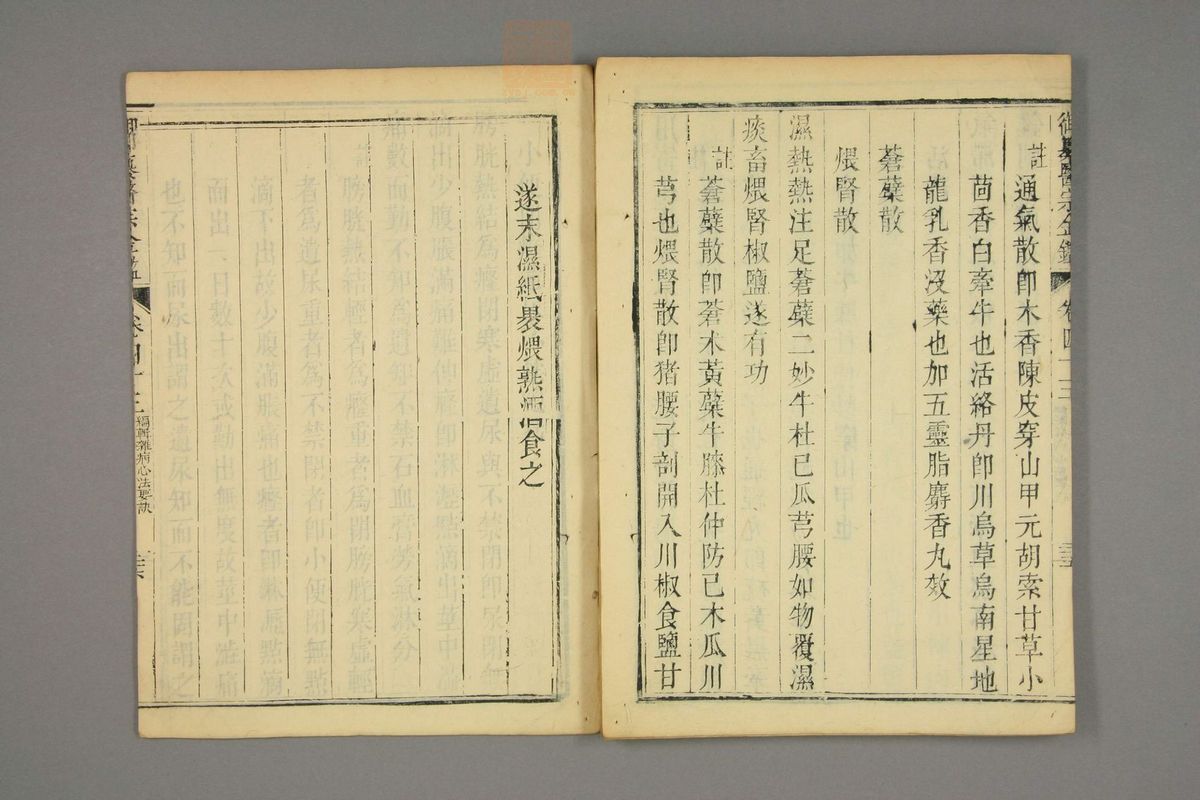 御纂醫宗金鑑 卷四十三
註通氣散卽木香陳皮穿山甲元胡索甘草小
茴香白牽牛也活絡丹卽川烏草烏南星地
龍乳香沒藥也加五靈脂麝香丸效
蒼蘗散
煨腎散
濕熱熱注足蒼蘗二妙牛杜已瓜芎腰如物覆濕
痰畜煨腎椒鹽遂有功
註蒼蘗散卽蒼朮黃蘗牛膝杜仲防已木瓜川
芎也煨腎散卽猪腰子剖開入川椒食鹽甘
遂末濕紙裹煨熟酒食之
御纂醫宗金鑑 卷四十三 編輯雜病心法要訣